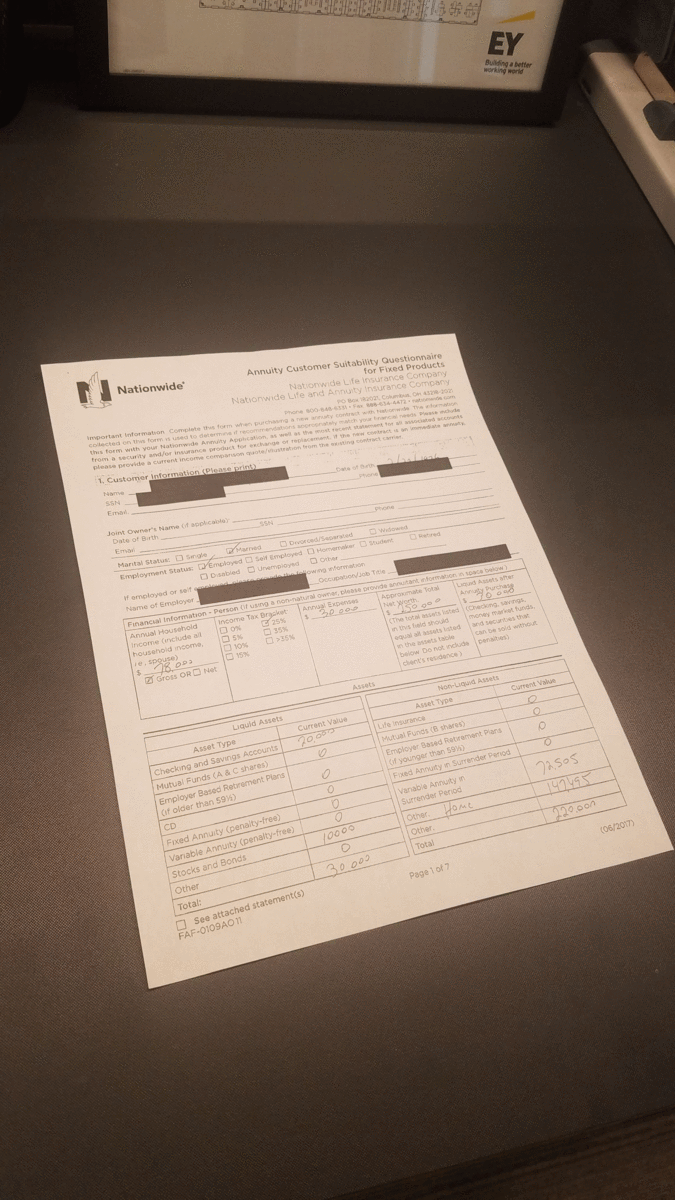 EY
Building a better
working world
Nationwide®
Annuity Customer Suitability Questionnaire
for Fixed Products
Nationwide Life Insurance Company
Nationwide Life and Annuity Insurance Company
PO Box 182021, Columbus, OH 43218-2021
Phone: 800-848-6331 • Fax: 888-634-4472 • nationwide.com
Important Information: Complete this form when purchasing a new annuity contract with Nationwide. The information
collected on this form is used to determine if recommendations appropriately match your financial needs. Please include
this form with your Nationwide Annuity Application, as well as the most recent statement for all associated accounts
from a security and/or insurance product for exchange or replacement. If the new contract is an immediate annuity,
please provide a current income comparison quote/illustration from the existing contract carrier.
1. Customer Information (Please print)
Name Date of Birth
SSN Phone
Email
Joint Owner's Name (if applicable)
Date of Birth SSN Phone
Email
Marital Status: Single Married Divorced/Separated Widowed
Employment Status: Employed Self Employed Homemaker Student Retired
Disabled Unemployed Other
If employed or self following information
Name of Employer Occupation/Job Title
Financial Information - Person (if using a non-natural owner, please provide annuitant information in space below.)
Annual Household
Income (include all
household income,
i.e., spouse)
$ 78,000
Gross OR Net
Income Tax Bracket
0% 25%
5% 35%
10% >35%
15%
Annual Expenses
$ 30 000
Approximate Total
Net Worth
$ 250 000
(The total assets listed
in this field should
equal all assets listed
in the assets table
below. Do not include
client's residence.)
Liquid Assets after
Annuity Purchase
$ 20 000
(Checking, savings,
money market funds,
and securities that
can be sold without
penalties)
Assets
Liquid Assets
Asset Type Current Value
Checking and Savings Accounts 20,000
Mutual Funds (A & C shares) 0
Employer Based Retirement Plans
(if older than 59½) 0
CD 0
Fixed Annuity (penalty-free) 0
Variable Annuity (penalty-free) 0
Stocks and Bonds 10000
Other 0
Total: 30 000
Non-Liquid Assets
Asset Type Current Value
Life Insurance 0
Mutual Funds (B shares) 0
Employer Based Retirement Plans
(if younger than 59½) 0
Fixed Annuity in Surrender Period 0
Variable Annuity in
Surrender Period 72,505
Other Home 147495
Other
Total 220,000
See attached statement(s)
FAF-0109AO.11
Page 1 of 7
(06/2017)